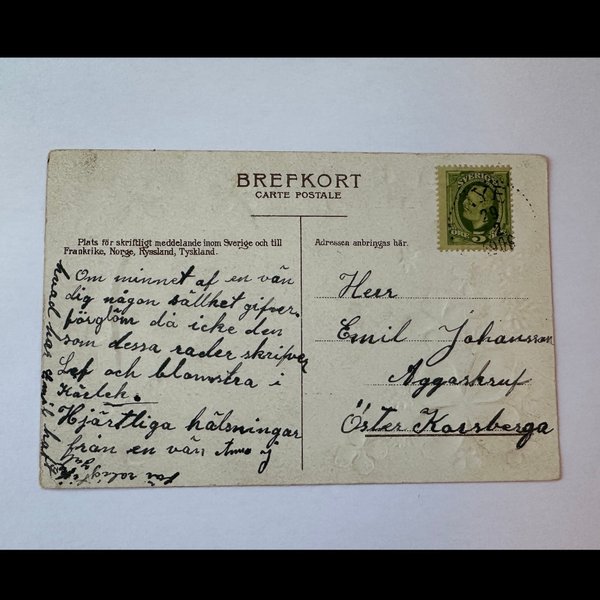 BREFKORT
CARTE POSTALE
SVERIGE
ÖRE 5
29
2
Plats för skriftligt meddelande inom Sverige och till
Frankrike, Norge, Ryssland, Tyskland.
Adressen anbringas här.
Om minnet af en vän
dig någon sällhet gifver.
förglöm då icke den
som dessa rader skrifver
Lef och blomstra i
Kärlek.
Hjärtliga hälsningar
från en vän Anna J
hvad har Emil haft
för roligt i
Jul
Herr
Emil Johansson
Aggaskruf
Öster Korsberga